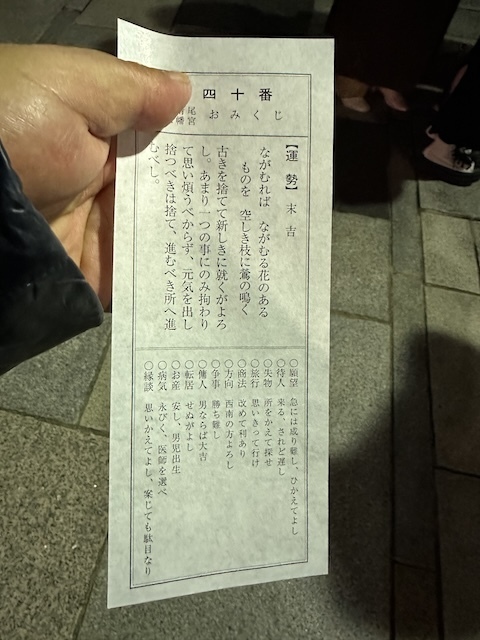 四十番
尾宮 おみくじ
【運勢】 末吉
ながむれば ながむる花のある
ものを 空しき枝に鶯の鳴く
古きを捨てて新しきに就くがよろ
し。あまり一つの事にのみ拘わり
て思い煩うべからず、元気を出し
捨つべきは捨て、進むべき所へ進
むべし。
○願望 急には成り難し、ひかえてよし
○待人 来る、されど遅し
○失物 所をかえて探せ
○旅行 思いきって行け
○商法 改めて利あり
○方向 西南の方よろし
○争事 勝ち難し
○傭人 男ならば大吉
○転居 せぬがよし
○お産 安し、男児出生
○病気 永びく、医師を選べ
○縁談 思いかえてよし、案じても駄目なり